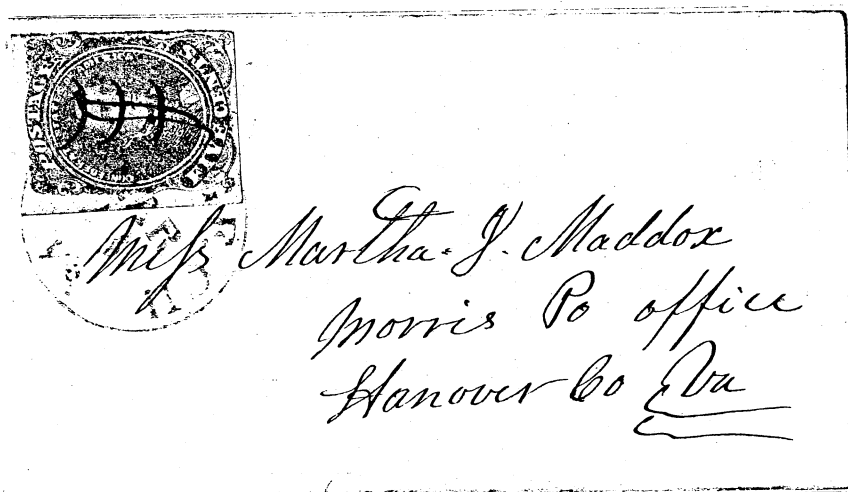 Miss Martha. J. Maddox
Morris Po office
Hanover Co Va